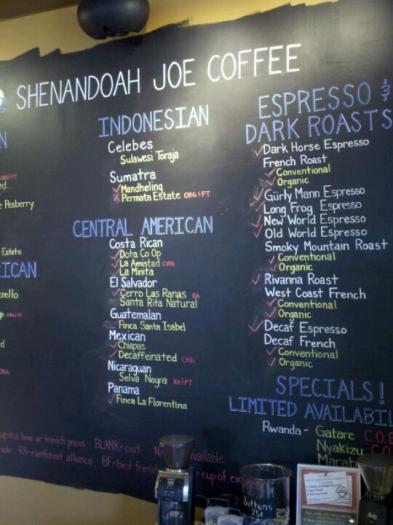 SHENANDOAH JOE COFFEE
Peaberry
Estate
INDONESIAN
Celebes
Sulawesi Toraja
Sumatra
Mandheling
Permata Estate ORG FT
CENTRAL AMERICAN
Costa Rican
Dota Co Op
La Amistad ORG
La Minita
El Salvador
Cerro Las Ranas RA
Santa Rita Natural
Guatemalan
Finca Santa Isabel
Mexican
Chiapas
Decaffeinated ORG
Nicaraguan
Selva Negra RA FT
Panama
Finca La Florentina
ESPRESSO &
DARK ROASTS
Dark Horse Espresso
French Roast
Conventional
Organic
Gurly Mann Espresso
Long Frog Espresso
New World Espresso
Old World Espresso
Smoky Mountain Roast
Conventional
Organic
Rivanna Roast
West Coast French
Conventional
Organic
Decaf Espresso
Decaf French
Conventional
Organic
SPECIALS!
LIMITED AVAILABIL
Rwanda - Gatare C.O.E
Nyakizu C.O
Marab
cup @ a time or french press BLANK = out available
RA = rainforest alliance BF = bird friend cup of ex